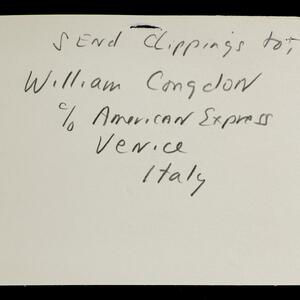 SEND Clippings to:
William Congdon
c/o American Express
Venice
Italy